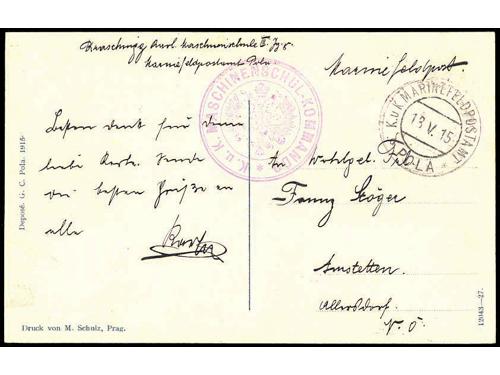 Marinefeldpostamt Pola
Marinefeldpost.
K. u. K. MASCHINENSCHUL-KOMMANDO
K.u.K. MARINEFELDPOSTAMT
13 V. 15
POLA
Besten Dank für deine
liebe Karte. Sende
die besten Grüße an
alle
Karl
An Wohlgeb.
Franz Stöger
Amstetten
Allersdorf
N. Ö.
Deposé. G. C. Pola. 1915
Druck von M. Schulz, Prag.
12043—27.